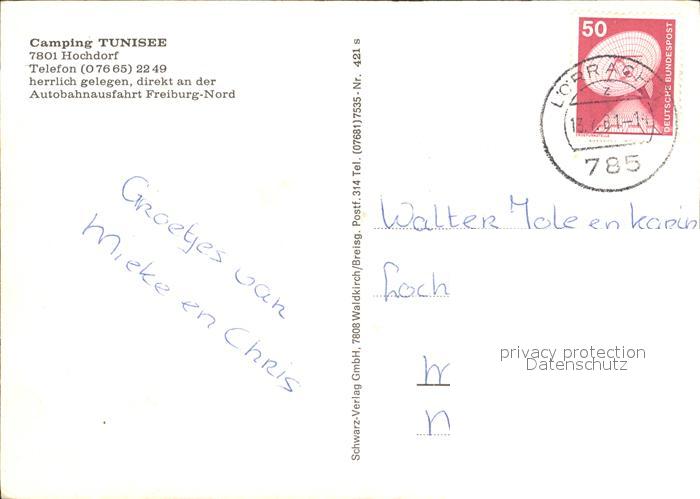 Camping TUNISEE
7801 Hochdorf
Telefon (07665) 2249
herrlich gelegen, direkt an der
Autobahnausfahrt Freiburg-Nord
Groetjes van
Mieke en Chris
Schwarz-Verlag GmbH, 7808 Waldkirch/Breisg. Postf. 314 Tel. (07681) 7535 - Nr. 421 s
50
DEUTSCHE BUNDESPOST
LÖRRACH
z
785
Walter Jole en Karin
Loch
W
n
privacy protection
Datenschutz